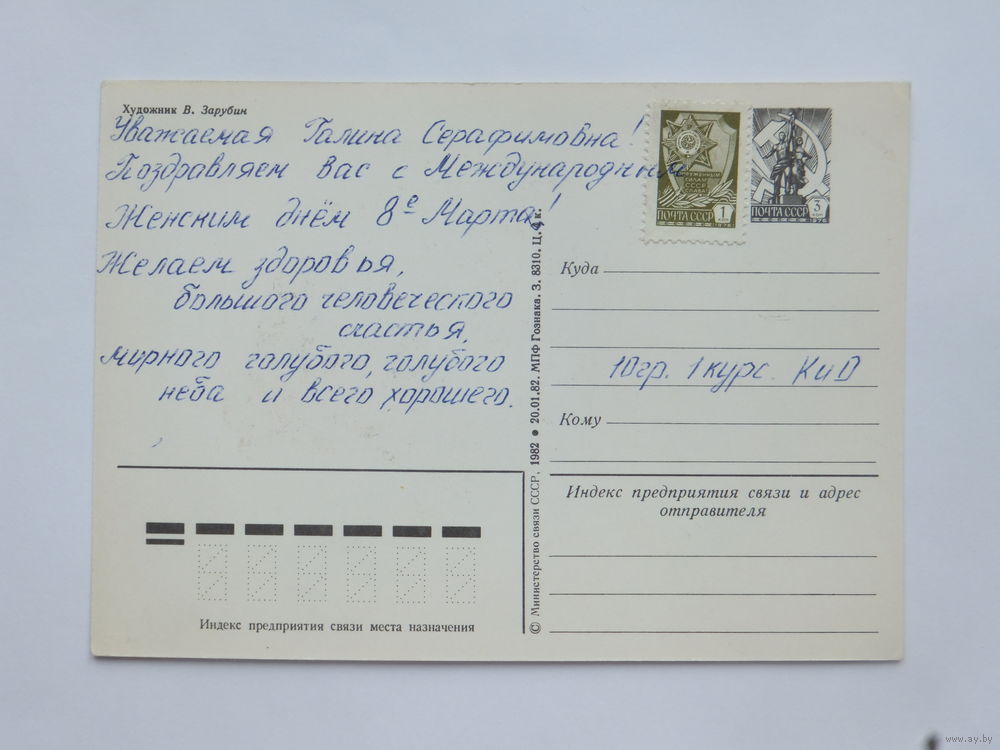 Художник В. Зарубин
Уважаемая Галина Серафимовна!
Поздравляем Вас с Международным
Женским днём 8е Марта!
Желаем здоровья,
большого человеческого
счастья,
мирного голубого, голубого
неба и всего хорошего.
ВООРУЖЕННЫМ
СИЛАМ
СССР
СЛАВА
ПОЧТА СССР 1 коп
1976
ПОЧТА СССР 3 коп
1976
Куда
10гр. 1 курс. КиД
Кому
Индекс предприятия связи и адрес
отправителя
© Министерство связи СССР, 1982 ● 20.01.82. МПФ Гознака. З. 8310. Ц. 4 к.
Индекс предприятия связи места назначения
www.ay.by